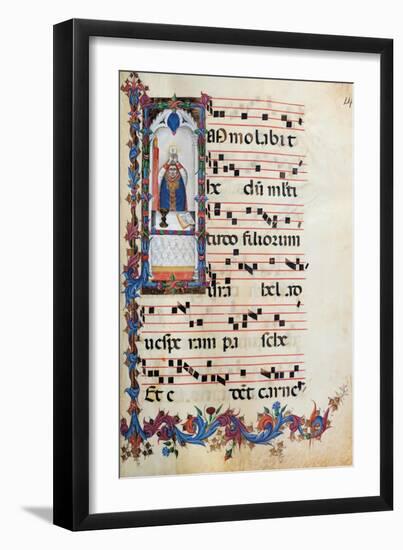 IMmolabit
he dū multi
tudo filiorum
isra hel ad
uespe ram pa sche
Et e dēt carne